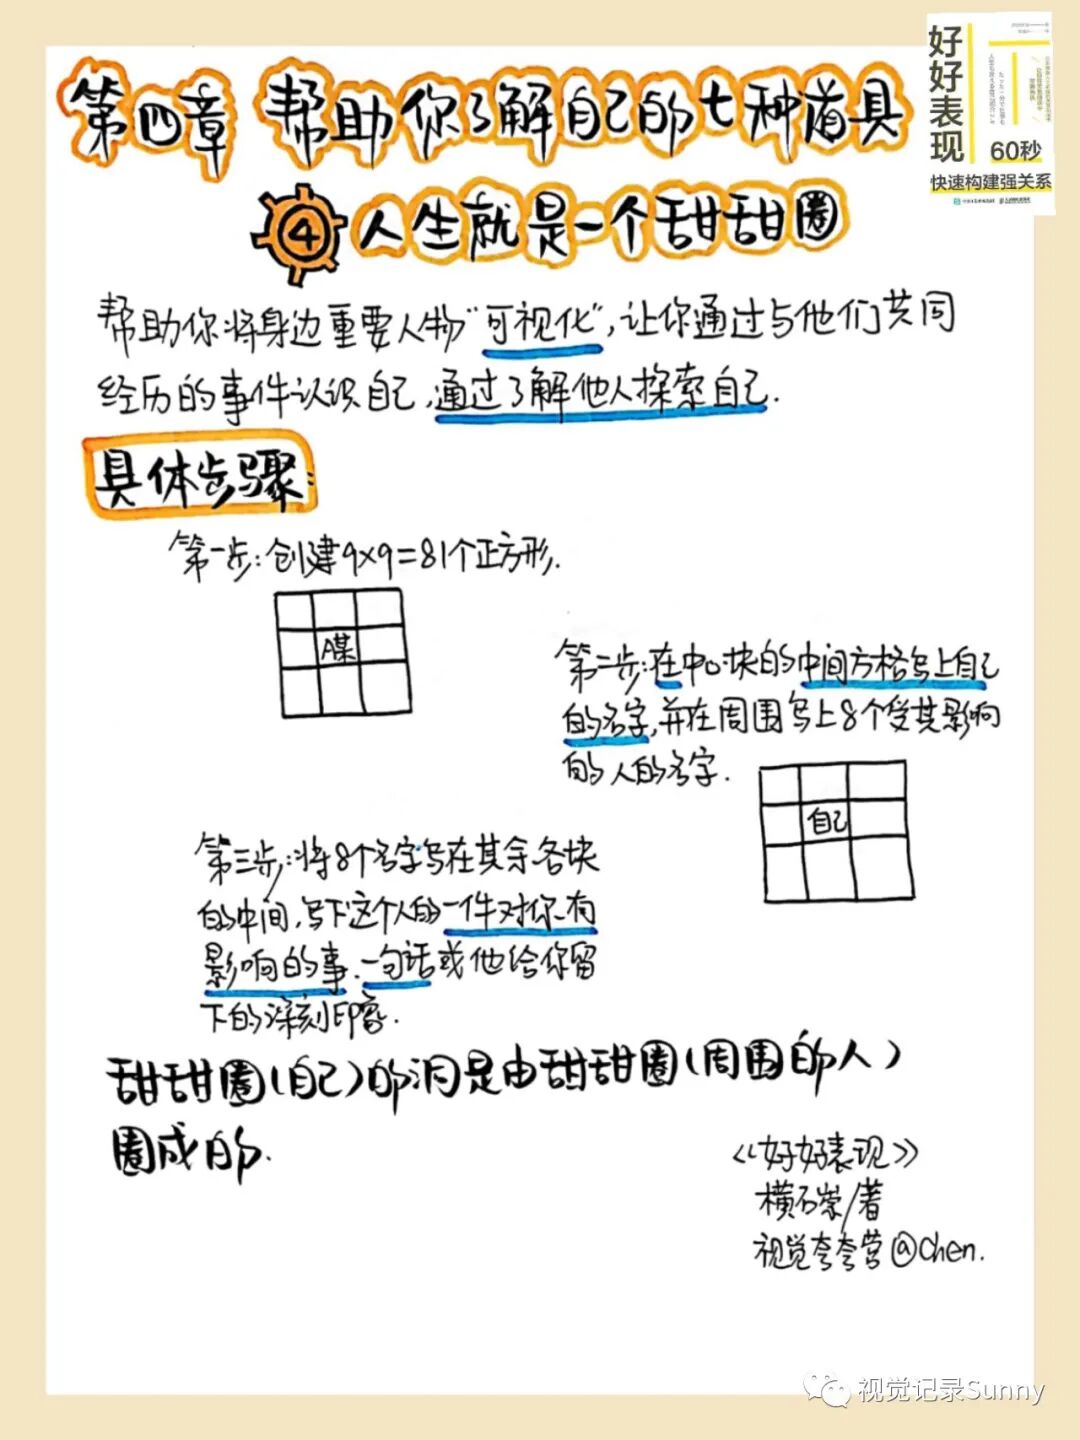 好好表现
60秒
快速构建强关系
第四章 帮助你了解自己的七种道具
④ 人生就是一个甜甜圈
帮助你将身边重要人物“可视化”，让你通过与他们共同
经历的事件认识自己，通过了解他人探索自己.
具体步骤:
第一步:创建9×9=81个正方形.
A某
第二步:在中心块的中间方格写上自己
的名字,并在周围写上8个受其影响
的人的名字.
自己
第三步:将8个名字写在其余各块
的中间,写下这个人的一件对你有
影响的事、一句话或他给你留
下的深刻印象.
甜甜圈(自己)的洞是由甜甜圈(周围的人)
圈成的.
《好好表现》
横石崇/著
视觉夸夸营@Chen.
视觉记录Sunny